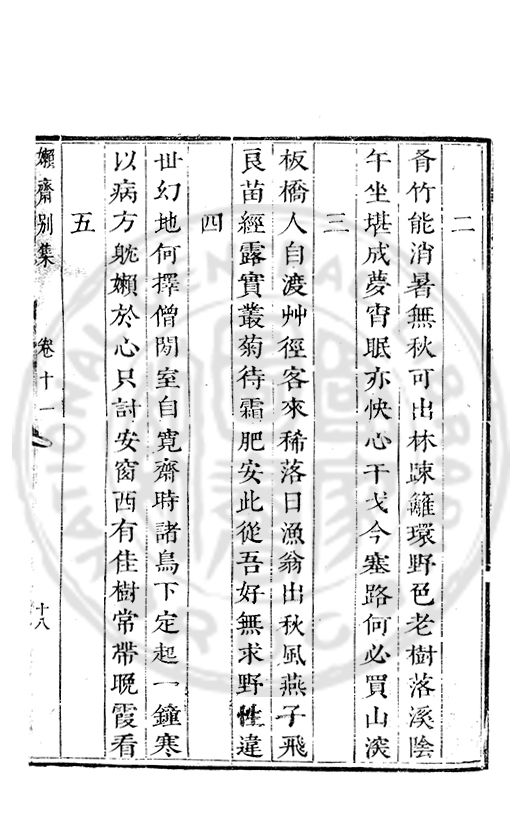 二
沓竹能消暑無秋可出林踈籬環野色老樹落溪陰
午坐堪成夢宵眠亦快心干戈今塞路何必買山㴱
三
板橋人自渡艸徑客來稀落日漁翁出秋風燕子飛
良苗經露實叢菊待霜肥安此從吾好無求野性違
四
世幻地何擇僧閒室自寛齋時諸鳥下定起一鐘寒
以病方躭嬾於心只討安窗西有佳樹常帶晚霞看
五
嬾齋别集
卷十一
十八